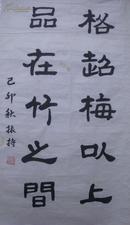 格超梅以上
品在竹之間
己卯秋振持